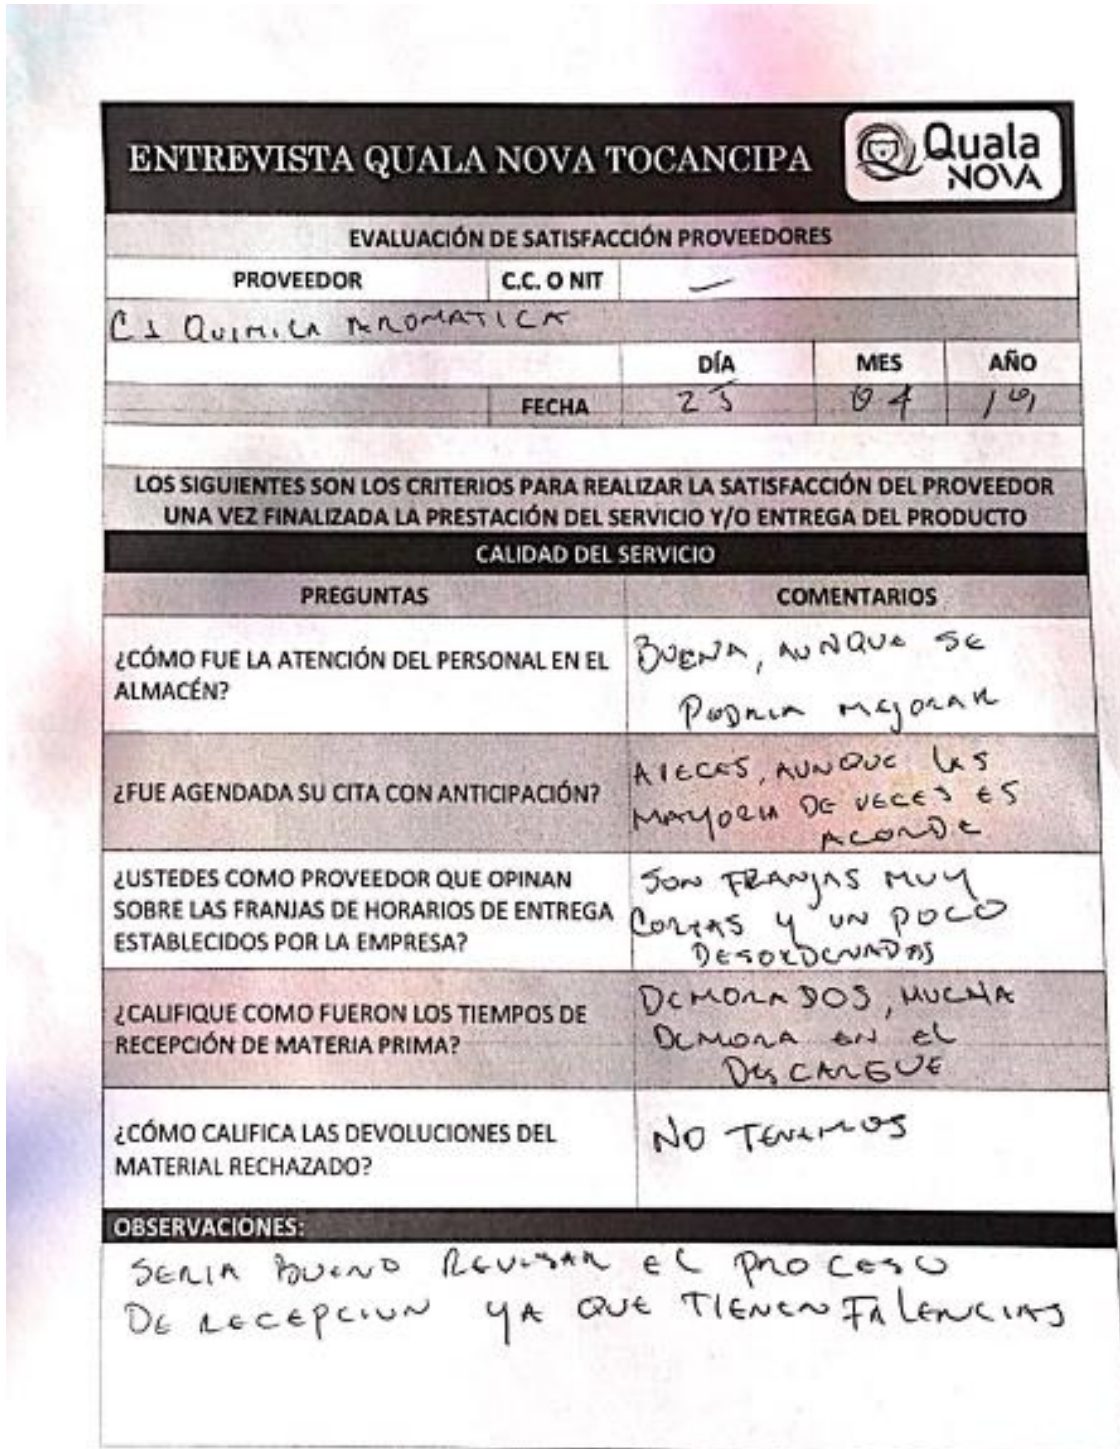 ENTREVISTA QUALA NOVA TOCANCIPA
Quala
NOVA
EVALUACIÓN DE SATISFACCIÓN PROVEEDORES
PROVEEDOR C.C. O NIT —
C I QUIMICA AROMATICA
DÍA MES AÑO
FECHA 25 04 19
LOS SIGUIENTES SON LOS CRITERIOS PARA REALIZAR LA SATISFACCIÓN DEL PROVEEDOR
UNA VEZ FINALIZADA LA PRESTACIÓN DEL SERVICIO Y/O ENTREGA DEL PRODUCTO
CALIDAD DEL SERVICIO
PREGUNTAS COMENTARIOS
¿CÓMO FUE LA ATENCIÓN DEL PERSONAL EN EL
ALMACÉN?
BUENA, AUNQUE SE
PODRIA MEJORAR
¿FUE AGENDADA SU CITA CON ANTICIPACIÓN?
AVECES, AUNQUE LAS
MAYORIA DE VECES ES
ACORDE
¿USTEDES COMO PROVEEDOR QUE OPINAN
SOBRE LAS FRANJAS DE HORARIOS DE ENTREGA
ESTABLECIDOS POR LA EMPRESA?
SON FRANJAS MUY
CORTAS Y UN POCO
DESORDENADAS
¿CALIFIQUE COMO FUERON LOS TIEMPOS DE
RECEPCIÓN DE MATERIA PRIMA?
DEMORADOS, MUCHA
DEMORA EN EL
DESCARGUE
¿CÓMO CALIFICA LAS DEVOLUCIONES DEL
MATERIAL RECHAZADO?
NO TENEMOS
OBSERVACIONES:
SERIA BUENO REVISAR EL PROCESO
DE RECEPCION YA QUE TIENEN FALENCIAS